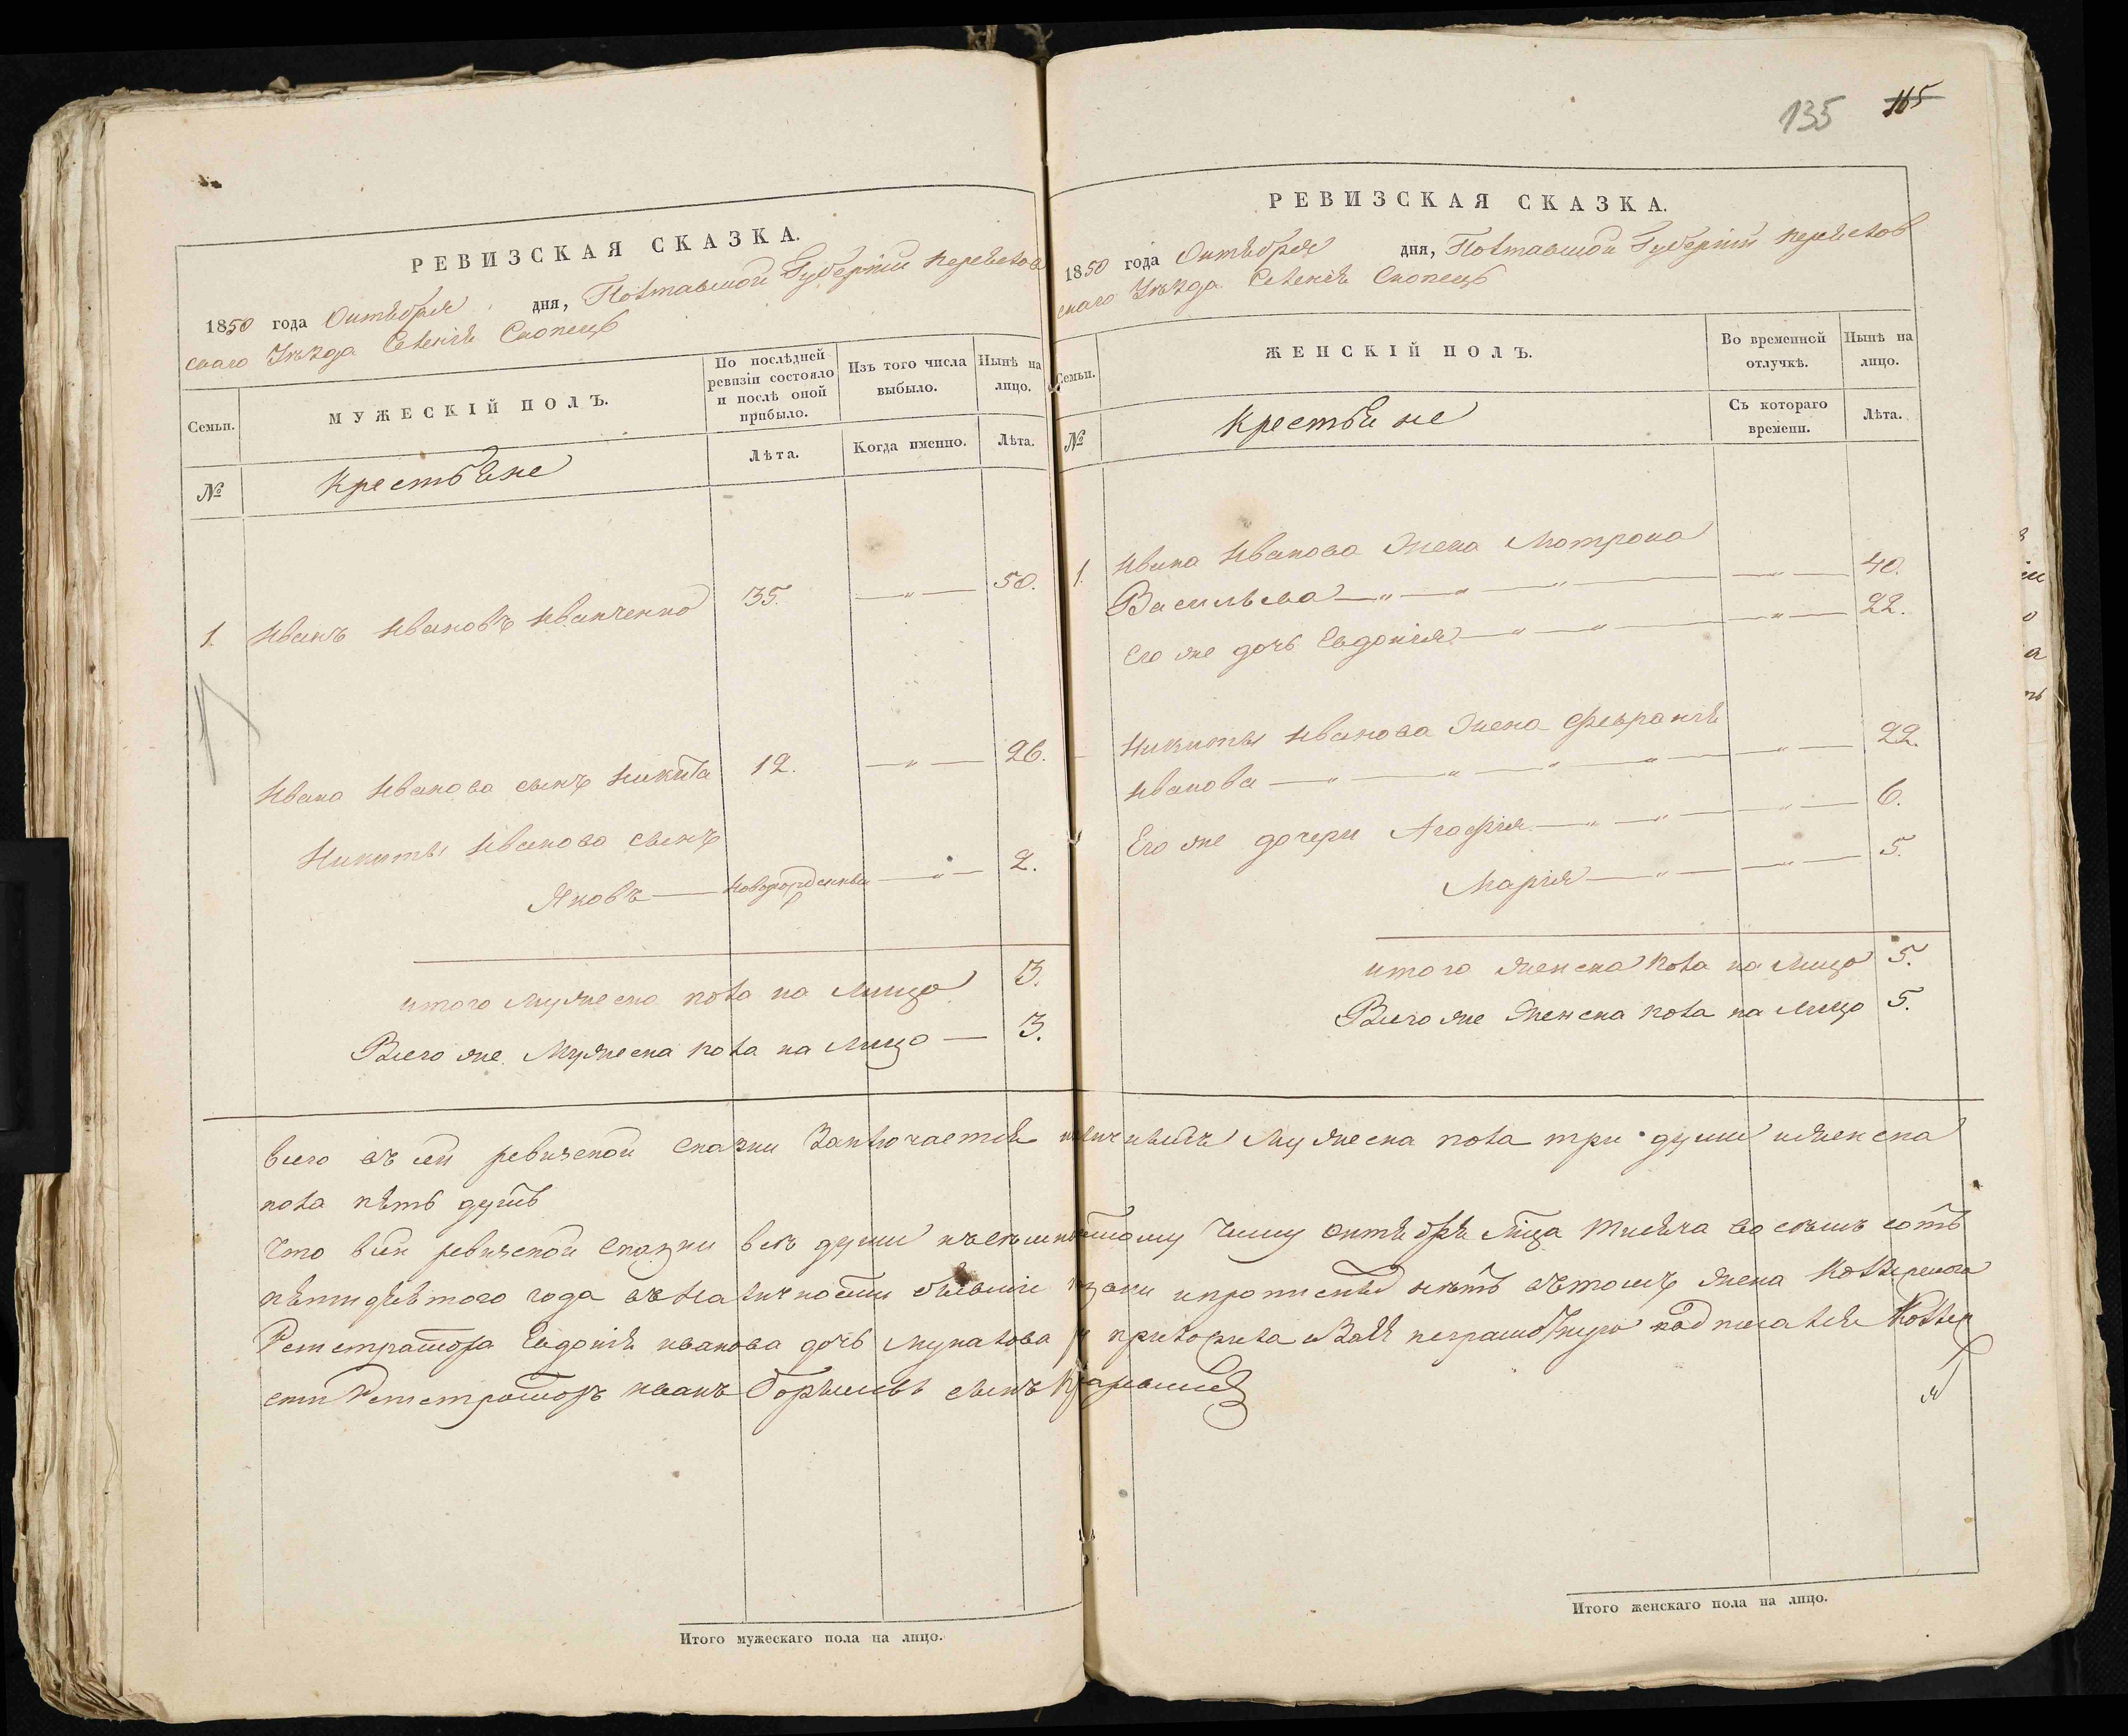 135 165
РЕВИЗСКАЯ СКАЗКА.
1850 года Октября дня, Полтавской Губерніи Переяслов
скаго Уѣзда Селенія Скопецъ
Семьи.
МУЖЕСКІЙ ПОЛЪ.
По послѣдней ревизіи состояло и послѣ оной прибыло.
Изъ того числа выбыло.
Нынѣ на лицо.
№
Крестьяне
Лѣта.
Когда именно.
Лѣта.
1. Иванъ Ивановъ Иванченко 35. —„— 50.
Ивана Иванова сынъ Никита 12. —„— 26.
Никиты Иванова сынъ
Яковъ — новорожденный —„— 2.
итого мужеска пола на лицо 3.
Всего же мужеска пола на лицо — 3.
РЕВИЗСКАЯ СКАЗКА.
1850 года Октября дня, Полтавской Губерніи Переяслов
скаго Уѣзда Селенія Скопецъ
Семьи.
ЖЕНСКІЙ ПОЛЪ.
Во временной отлучкѣ.
Нынѣ на лицо.
№
Крестьяне
Съ котораго времени.
Лѣта.
1. Ивана Иванова жена Мотрона
Васильева —„—„—„— —„— 40.
Его же дочь Евдокія —„—„— —„— 22.
Никиты Иванова жена Февронія
Иванова —„—„—„—„— —„— 22.
Его же дочери Агафія —„—„— —„— 6.
Марія —„— —„— 5.
итого женска пола на лицо 5.
Всего же женска пола на лицо 5.
всего въ сей ревизской сказки заключается наличныхъ мужеска пола три души и женска
пола пять душъ
Что в сей ревизской сказки всѣ души къ октября мца тисяча восемъ сотъ
пятидесятого года въ наличности бывшіе и прописныхъ нѣтъ въ томъ жена Коллежского
Регистратора Евдокія Иванова дочь приложила а вмѣсто неграмотную подписался Коллеж
скій Регистраторъ Иванъ сынъ
Итого мужескаго пола на лицо.
Итого женскаго пола на лицо.